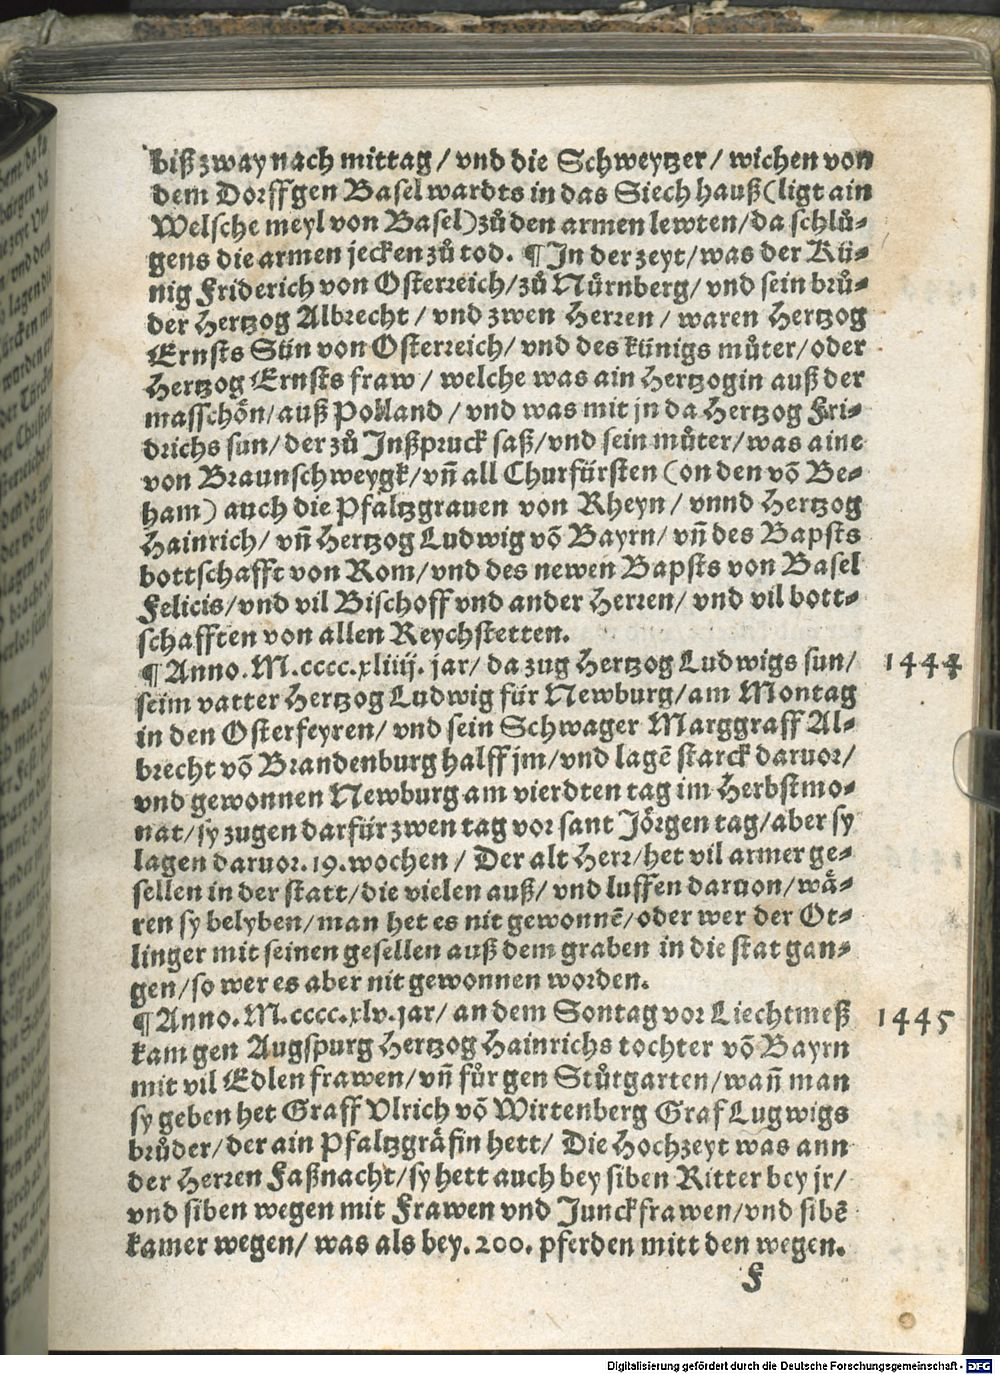 biß zway nach mittag / vnd die Schweytzer / wichen von
dem Dorff gen Basel wardts in das Siech hauß (ligt ain
Welsche meyl von Basel) zů den armen lewten / da schlů-
gens die armen jecken zů tod. ¶ In der zeyt / was der Kü-
nig Friderich von Osterreich / zů Nürnberg / vnd sein brů-
der Hertzog Albrecht / vnd zwen Herren / waren Hertzog
Ernsts Sün von Osterreich / vnd des künigs můter / oder
Hertzog Ernsts fraw / welche was ain Hertzogin auß der
masschön / auß Polland / vnd was mit jn da Hertzog Fri-
drichs sun / der zů Inßpruck saß / vnd sein můter / was aine
von Braunschweygk / vñ all Churfürsten (on den võ Be-
ham) auch die Pfaltzgrauen von Rheyn / vnnd Hertzog
Hainrich / vñ Hertzog Ludwig võ Bayrn / vñ des Bapsts
bottschafft von Rom / vnd des newen Bapsts von Basel
Felicis / vnd vil Bischoff vnd ander Herren / vnd vil bott-
schafften von allen Reychstetten.
¶ Anno. M. cccc. xliiij. jar / da zug Hertzog Ludwigs sun /
1444
seim vatter Hertzog Ludwig für Newburg / am Montag
in den Osterfeyren / vnd sein Schwager Marggraff Al-
brecht võ Brandenburg halff jm / vnd lagẽ starck daruor /
vnd gewonnen Newburg am vierdten tag im Herbstmo-
nat / sy zugen darfür zwen tag vor sant Jörgen tag / aber sy
lagen daruor. 19. wochen / Der alt Herr / het vil armer ge-
sellen in der statt / die vielen auß / vnd luffen daruon / wä-
ren sy belyben / man het es nit gewonnẽ / oder wer der Ot-
linger mit seinen gesellen auß dem graben in die stat gan-
gen / so wer es aber nit gewonnen worden.
¶ Anno. M. cccc. xlv. jar / an dem Sontag vor Liechtmeß
1445
kam gen Augspurg Hertzog Hainrichs tochter võ Bayrn
mit vil Edlen frawen / vñ fůr gen Stůtgarten / wañ man
sy geben het Graff Vlrich võ Wirtenberg Graf Lugwigs
brůder / der ain Pfaltzgräfin hett / Die Hochzeyt was ann
der Herren Faßnacht / sy hett auch bey siben Ritter bey jr /
vnd siben wegen mit Frawen vnd Junckfrawen / vnd sibẽ
kamer wegen / was als bey. 200. pferden mitt den wegen.
F
Digitalisierung gefördert durch die Deutsche Forschungsgemeinschaft - DFG